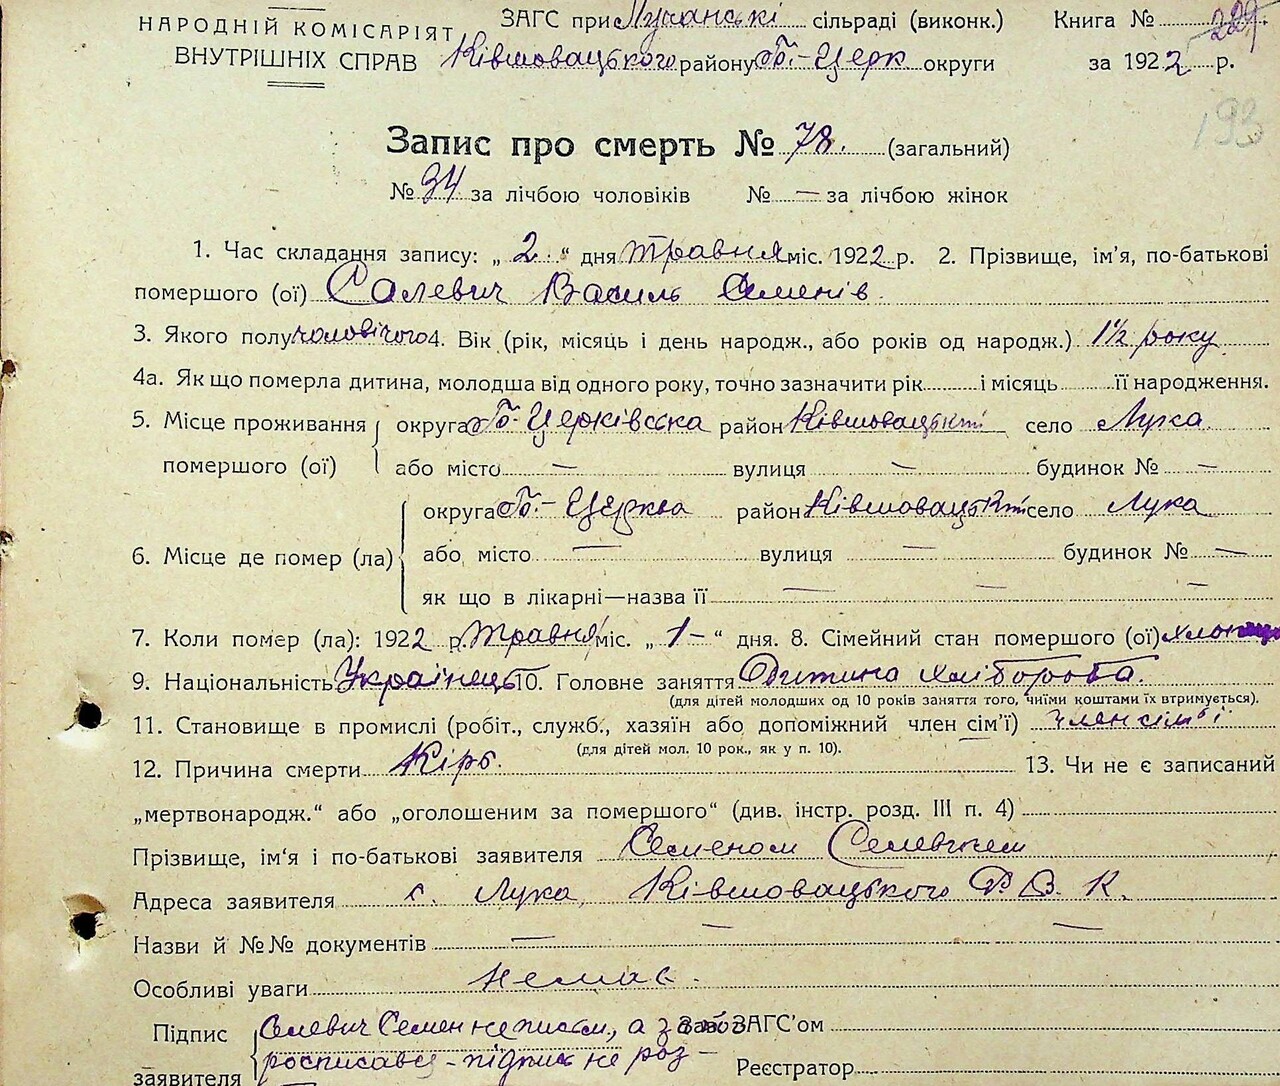 НАРОДНІЙ КОМІСАРІЯТ
ВНУТРІШНІХ СПРАВ
ЗАГС при Лучанські сільраді (виконк.) Книга №
Ківшовацького району Б.-Церк округи за 1922 р.
193
Запис про смерть № 78. (загальний)
№ 34 за лічбою чоловіків № — за лічбою жінок
1. Час складання запису: „ 2 “ дня травня міс. 1922 р. 2. Прізвище, ім'я, по-батькові
помершого (ої) Салевич Василь Семенів
3. Якого полу чоловічого 4. Вік (рік, місяць і день народж., або років од народж.) 1½ року
4а. Як що померла дитина, молодша від одного року, точно зазначити рік і місяць її народження.
5. Місце проживання помершого (ої) округа Б-Церківська район Ківшовацькій село Лука
або місто — вулиця — будинок № —
6. Місце де помер (ла) округа Б.-Церква район Ківшовацькій село Лука
або, місто — вулиця — будинок № —
як що в лікарні—назва її — — —
7. Коли помер (ла): 1922 р. травня міс. „ 1- “ дня. 8. Сімейний стан помершого (ої)
9. Національність Українець 10. Головне заняття Дитина хлібороба.
(для дітей молодших од 10 років заняття того, чиїми коштами їх втримується).
11. Становище в промислі (робіт., служб., хазяїн або допоміжний член сім'ї) член сім'ї
(для дітей мол. 10 рок., як у п. 10).
12. Причина смерти Кірь. 13. Чи не є записаний
„мертвонародж.“ або „оголошеним за помершого“ (див. інстр. розд. III п. 4)
Прізвище, ім'я і по-батькові заявителя Семеном Селевичем
Адреса заявителя с. Лука, Ківшовацького Р. В. К.
Назви й №№ документів — — —
Особливі уваги немає.
Підпис заявителя Селевич Семен неписьм., а за ЗАГС'ом
росписався - підпис не роз- Реєстратор